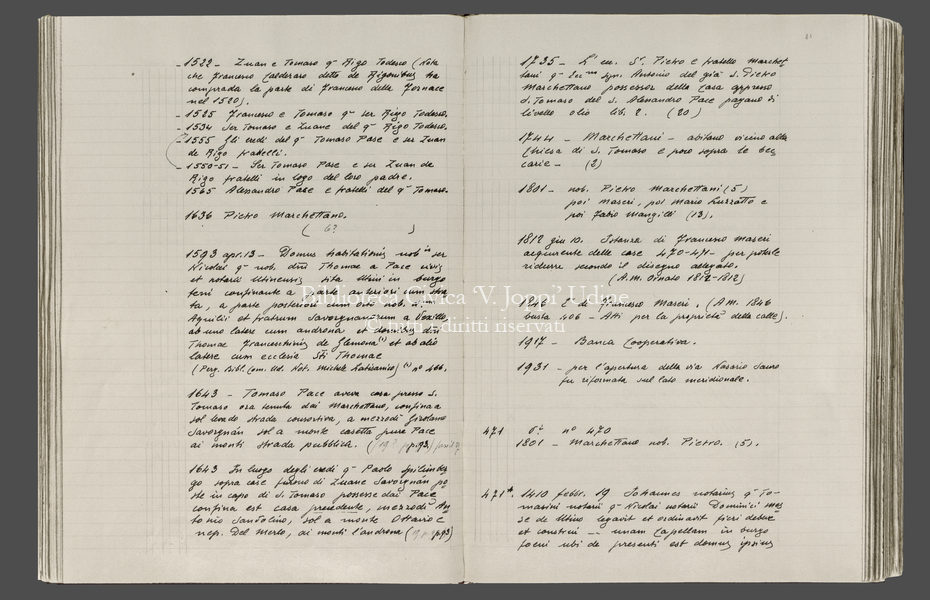 - 1522 - Zuan e Tomaso q.m Rigo Todesco (Note
che Francesco Calderaro detto de Rigonibus ha
comprada la parte di Francesco della Fornace
nel 1520).
- 1525 Francesco e Tomaso q.m ser Rigo Todesco.
- 1534 Ser Tomaso e Zuane del q.m Rigo Todesco.
1555 Gli eredi del q.m Tomaso Pase e ser Zuan
de Rigo fratelli.
- 1550-51 - Ser Tomaso Pase e ser Zuan de
Rigo fratelli in logo del loro padre.
1565 Alessandro Pase e fratelli del q.m Tomaso.
1636 Pietro Marchettano.
( 6? )
1593 apr. 13 - Domus habitationis nob.is ser
Nicolai q.m nob. dñi Thomae a Pace civis
et notarii Utinensis sita Utini in burgo
confinante a parte anteriori cum stra
ta, a parte posteriori cum
Aquilii et fratrum Savorgnanorum a
ab uno latere cum androna et domibus dñi
Thomae Franceschinis de Glemona (1) et ab alio
latere cum ecclesia Sti Thomae
(Perg. Bibl. Com. Ud. Not. Michele) (1) n° 466.
1643 - Tomaso Pace aveva casa presso S.
Tomaso ora tenuta dai Marchettano, confina a
sol levado strada consortiva, a mezzodì Girolamo
Savorgnan sol a monte casetta pure Pace
ai monti strada pubblica. ( p. 93)
1643 In luogo degli eredi q.m Paolo Spilimber
go sopra case furono di Zuane Savorgnan po
ste in capo di S. Tomaso possesse dai Pace
confina est casa precedente, mezzodì An
tonio Santolino, sol a monte Ottavio e
nep. Del Merlo, ai monti l'androna ( p. 93)
1735 - L'eu. Sr. Pietro e fratello marchet
tani q.m sgn. Antonio del già S. Pietro
Marchettano possessor della casa appresso
S. Tomaso del S. Alessandro Pace pagano di
livello olio lib. 2. (20)
1744 - Marchettani - abitano vicino alla
Chiesa di S. Tomaso e poco sopra le bec
carie - (2)
1801 - nob. Pietro Marchettani (5)
poi Maseri, poi Mario Luzzatto e
poi Fabio Mangilli (13).
1812 giu 10. Istanza di Francesco Maseri
acquirente delle case 470-471 - per poterle
ridurre secondo il disegno allegato.
(A.M. Ornato 1812-1812)
1846 è di Francesco Maseri. (A.M. 1846
busta 406 - Atti per la proprietà della calle).
1917 - Banca Cooperativa.
1931 - per l'apertura della via Nazario Sauro
fu riformata sul lato meridionale.
471 n° 470
1801 - Marchettano nob. Pietro. (5).
471*. 1410 febbr. 19 Johannes notarius q.m To-
masini notarii q.m Nicolai notarii Dominici
se de Utino legavit et ordinavit fieri debere
et construi -- unam Cappellam in burgo
foeni ubi de presenti est domus ipsius
Biblioteca Civica 'V. Joppi' Udine
© tutti i diritti riservati